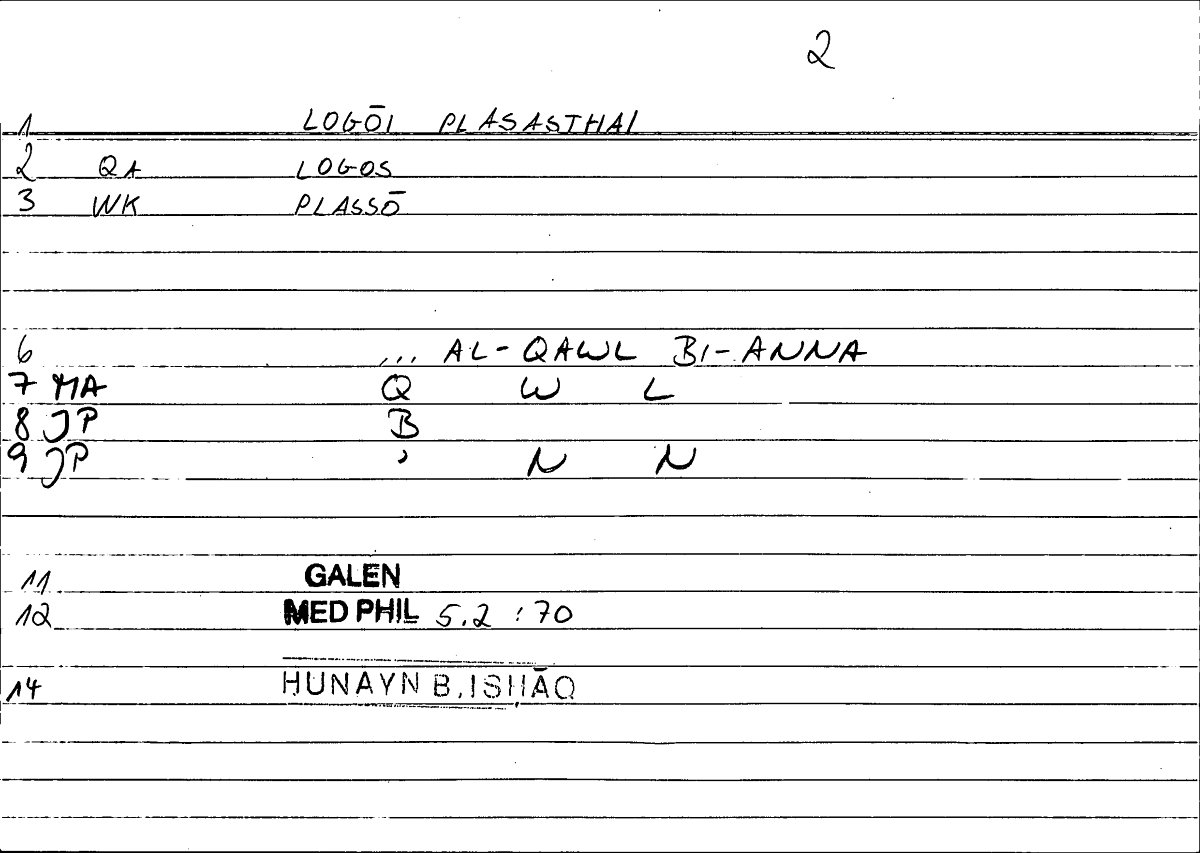 2
1 LOGŌI PLASASTHAI
2 QA LOGOS
3 WK PLASSŌ
6 ... AL-QAWL BI-ANNA
7 MA Q W L
8 JP B
9 JP ʾ N N
11 GALEN
12 MED PHIL 5.2 :70
14 HUNAYN B. ISḤĀQ